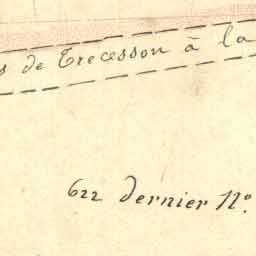 s de Trecesson à la
622 dernier N°.